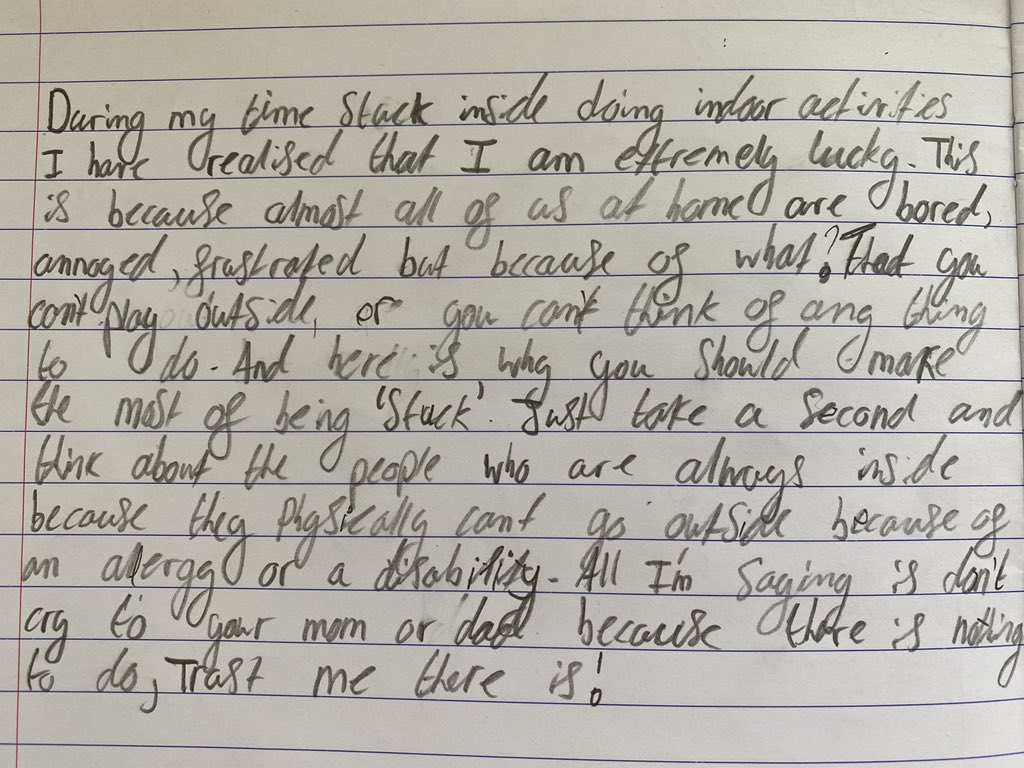 During my time stuck inside doing indoor activities
I have realised that I am extremely lucky. This
is because almost all of us at home are bored,
annoyed, frustrated but because of what? That you
can't play outside, or you can't think of any thing
to do. And here is why you should make
the most of being 'stuck'. Just take a second and
think about the people who are always inside
because they physically cant go outside because of
an allergy or a disability. All I'm saying is don't
cry to your mom or dad because there is nothing
to do, Trust me there is!